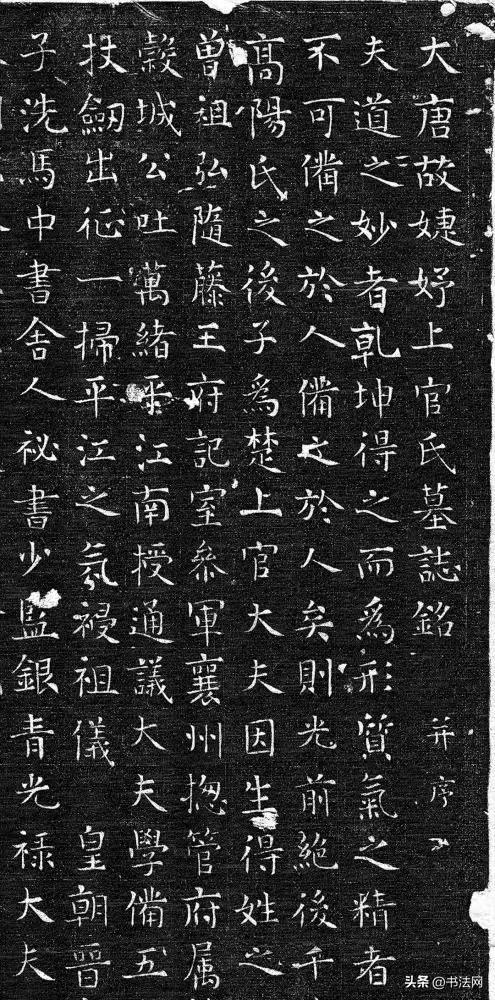 大唐故婕妤上官氏墓誌銘 并序
夫道之妙者乹坤得之而爲形質氣之精者
不可備之於人備之於人矣則光前絕後千
高陽氏之後子爲楚上官大夫因生得姓之
曾祖弘隨藤王府記室叅軍襄州揔管府属
穀城公吐萬緒平江南授通議大夫學備五
扙劒出征一掃平江之氛祲祖儀 皇朝晉
子洗馬中書舍人祕書少監銀青光祿大夫
头条 @书法网